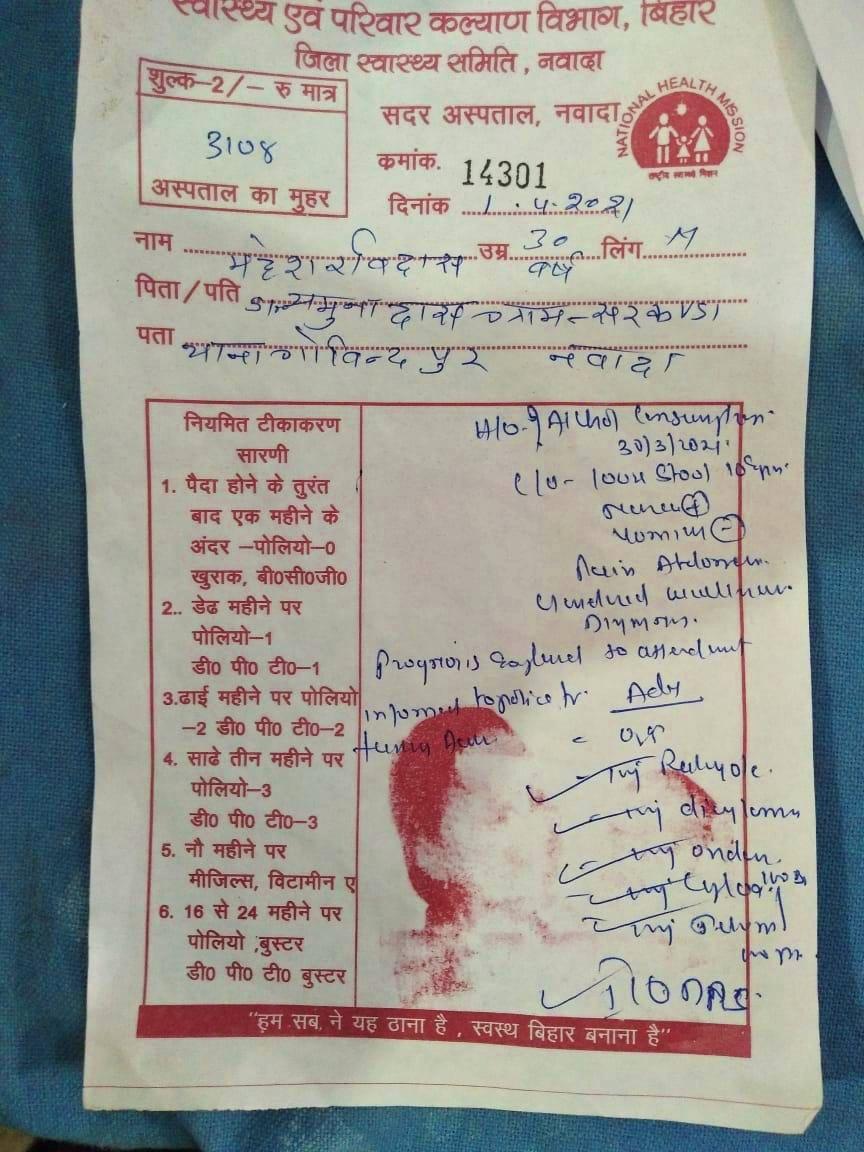 स्वास्थ्य एवं परिवार कल्याण विभाग, बिहार
जिला स्वास्थ्य समिति, नवादा
शुल्क-2/- रु मात्र
3108
अस्पताल का मुहर
सदर अस्पताल, नवादा
NATIONAL HEALTH MISSION
राष्ट्रीय स्वास्थ्य मिशन
कमांक. 14301
दिनांक 1.4.2021
नाम महेश रविदास उम्र 30 वर्ष लिंग M
पिता/पति यमुना दास ग्राम-सरकण्डा
पता थाना गोविन्दपुर नवादा
नियमित टीकाकरण
सारणी
1. पैदा होने के तुरंत
बाद एक महीने के
अंदर -पोलियो-0
खुराक, बी0सी0जी0
2.. डेढ महीने पर
पोलियो-1
डी0 पी0 टी0-1
3.ढाई महीने पर पोलियो
-2 डी0 पी0 टी0-2
4. साढे तीन महीने पर
पोलियो-3
डी0 पी0 टी0-3
5. नौ महीने पर
मीजिल्स, विटामीन ए
6. 16 से 24 महीने पर
पोलियो ,बुस्टर
डी0 पी0 टी0 बुस्टर
H/O Alcohol Consumption
30/3/2021
C/O - loose Stool
Pain Abdomen
Prognosis Explained to attendant
informed to police
Adv
inj
inj
inj ondem
inj
inj
"हम सब ने यह ठाना है , स्वस्थ बिहार बनाना है"